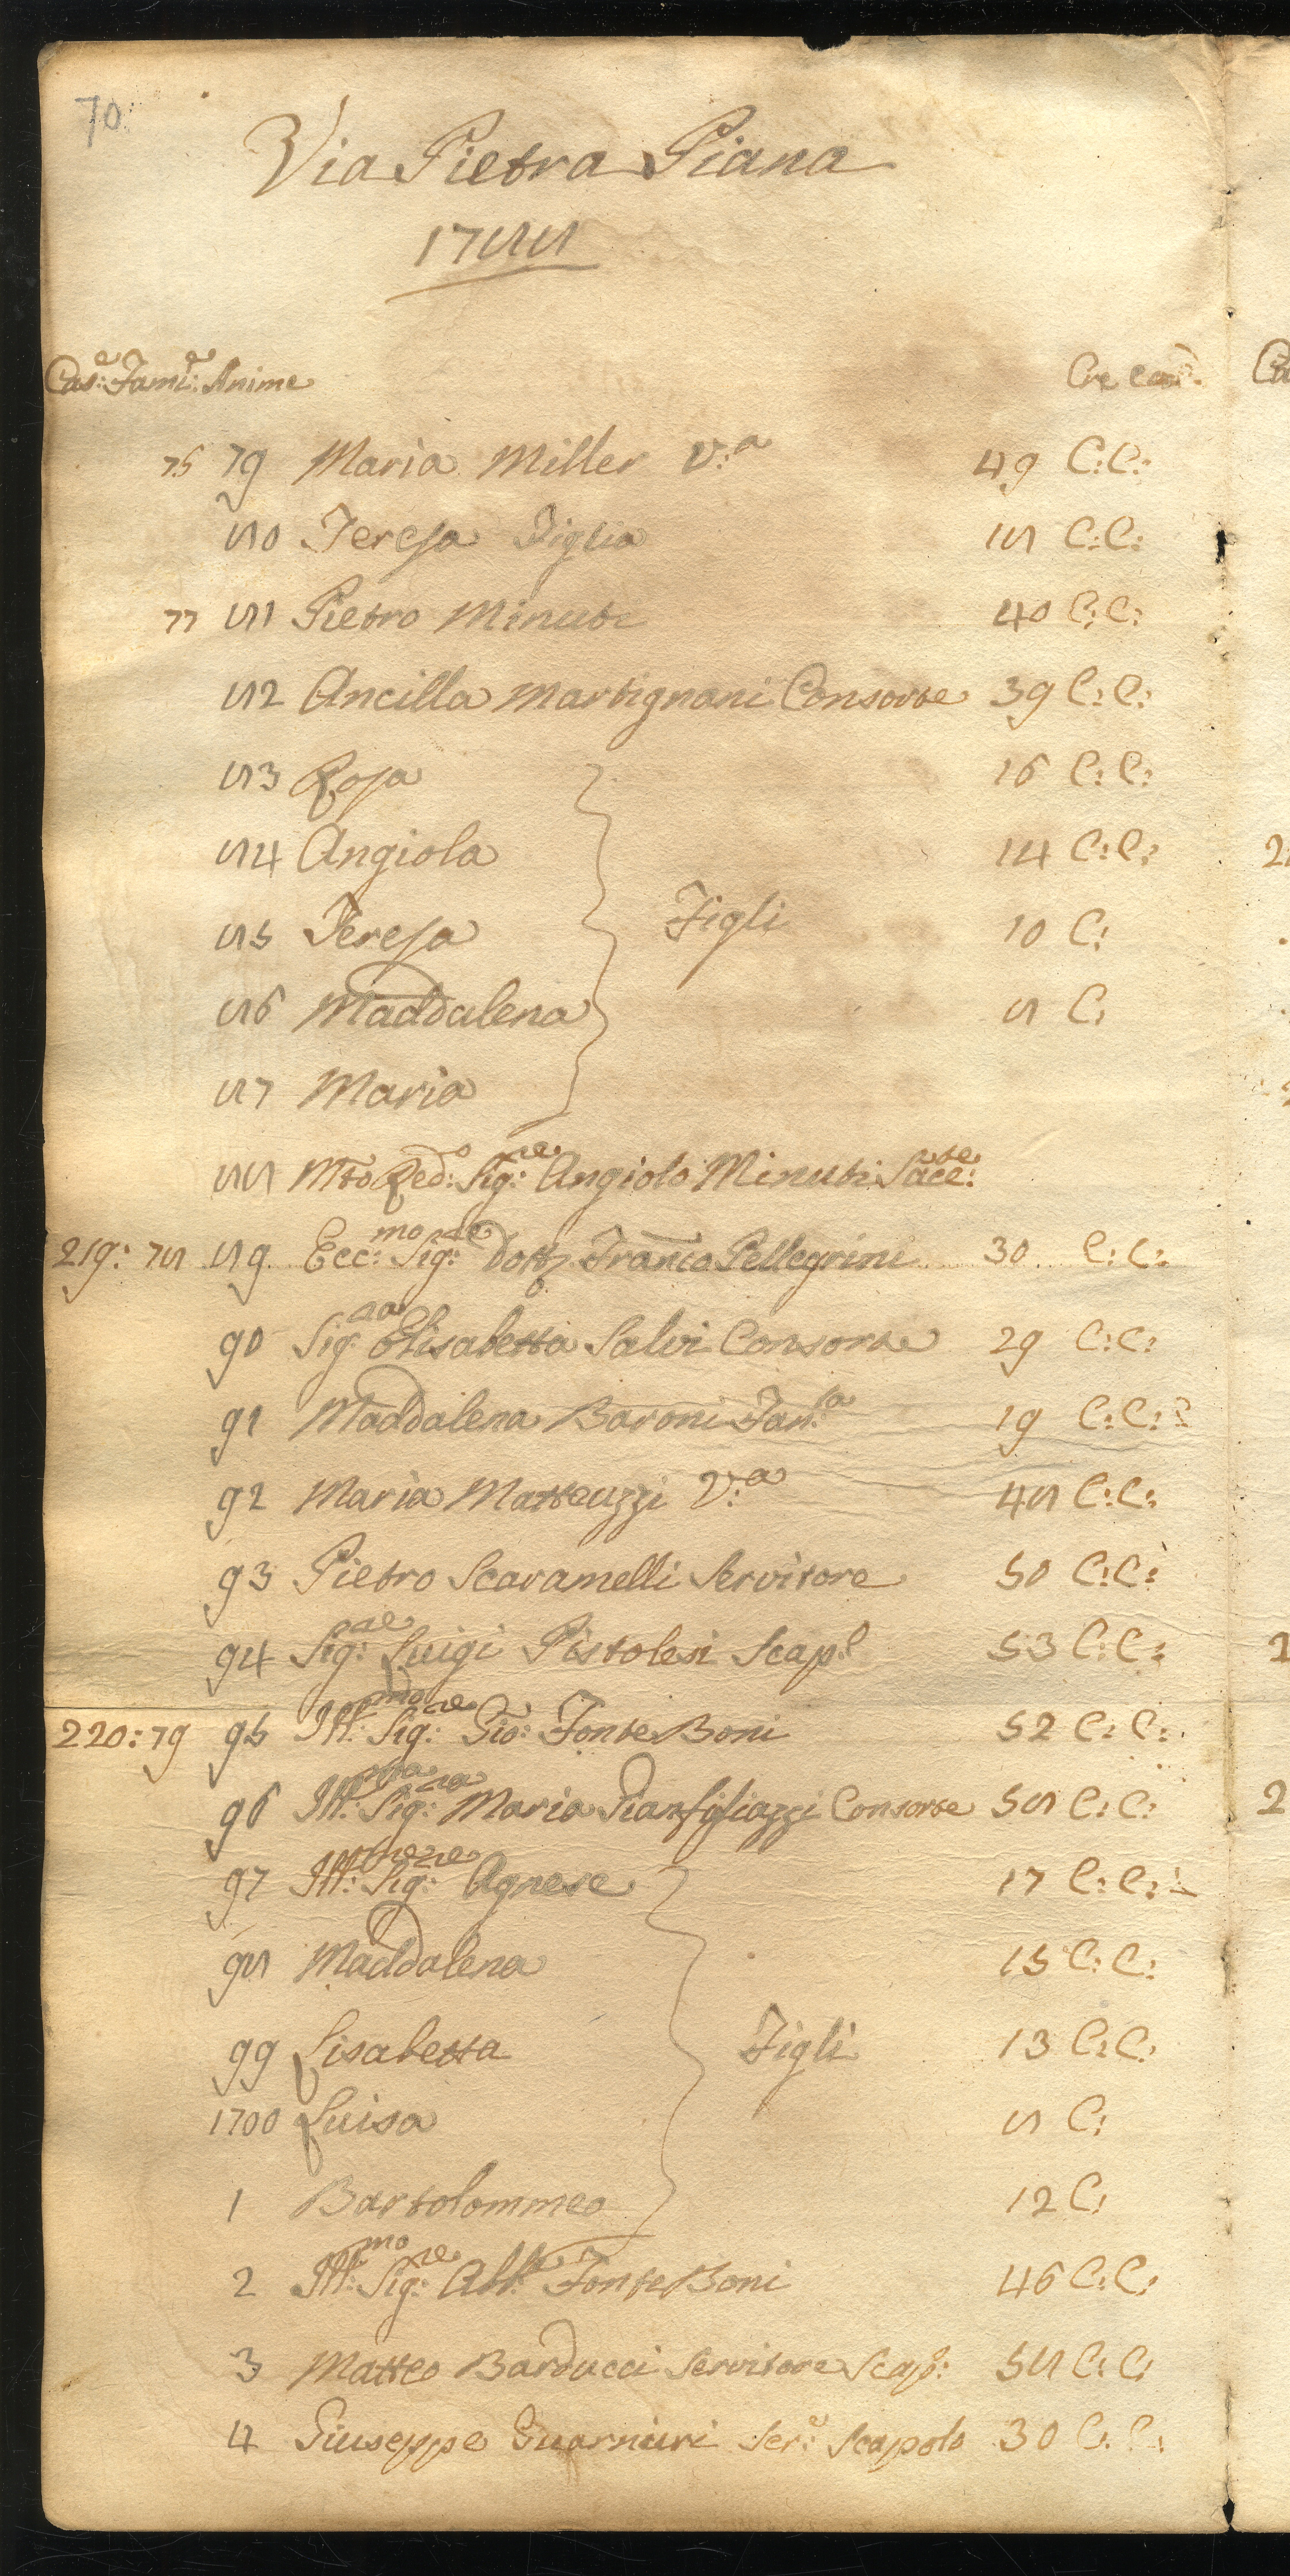 70.
Via Pietra Piana
1788
Cas:e Fami:e Anime Cre Com:
76 79 Maria Miller V:a 49 C:C:
80 Teresa Figlia 18 C:C:
77 81 Pietro Minuti 40 C:C:
82 Ancilla Martignani Consorte 39 C:C:
83 Rosa 16 C:C:
84 Angiola 14 C:C:
85 Teresa Figli 10 C:
86 Maddalena 8 C:
87 Maria
88 Mto Red:o Sig:re Angiolo Minuti Sace:te
219: 78 89 Ecc:mo Sig:re Dott Franco Pellegrini 30 C:C:
90 Sig:ra Elisabetta Salvi Consorte 29 C:C:
91 Maddalena Baroni Fan:a 19 C:C:
92 Maria Matteuzzi V:a 48 C:C:
93 Pietro Scaramelli Servitore 50 C:C:
94 Sig:re Luigi Pistolesi Scap:o 53 C:C:
220: 79 95 Ill:mo Sig:re Gio: Fonte Boni 52 C:C:
96 Ill:ma Sig:ra Maria Gianfigliazzi Consorte 58 C:C:
97 Ill:me Sig:re Agnese 17 C:C:
98 Maddalena 15 C:C:
99 Lisabetta Figli 13 C:C:
1700 Luisa 8 C:
1 Bartolommeo 12 C:
2 Ill:mo Sig:re Abb:e Fonte Boni 46 C:C:
3 Matteo Barducci Servitore Scap:o 58 C:C:
4 Giuseppe Guarnieri Ser:e Scapolo 30 C:C: